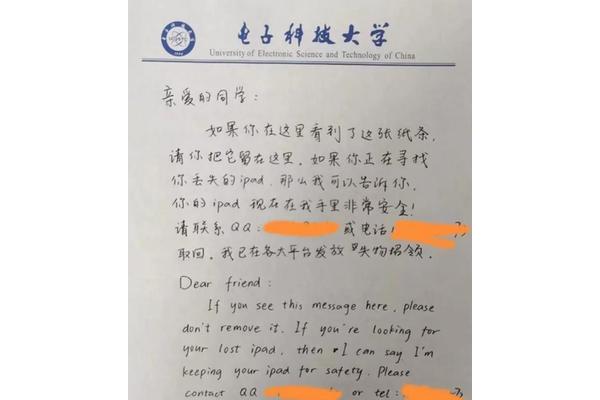 电子科技大学
University of Electronic Science and Technology of China
亲爱的同学：
如果你在这里看到了这张纸条，
请你把它留在这里。如果你正在寻找
你丢失的ipad，那么我可以告诉你，
你的ipad 现在在我手里非常安全！
请联系QQ： 或电话：
取回。我已在各大平台发放 失物招领。
Dear friend:
If you see this message here, please
don't remove it. If you're looking for
your lost ipad, then I can say I'm
keeping your ipad for safety. Please
contact QQ or tel: